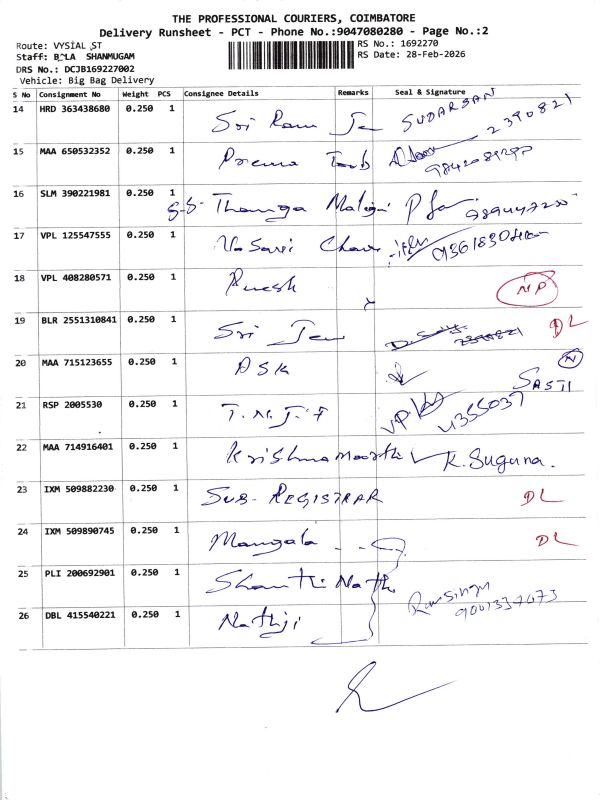 THE PROFESSIONAL COURIERS, COIMBATORE
Delivery Runsheet - PCT - Phone No.:9047080280 - Page No.:2
Route: VYSIAL ST
RS No.: 1692270
Staff: BALA SHANMUGAM
RS Date: 28-Feb-2026
DRS No.: DCJB169227002
Vehicle: Big Bag Delivery
S No Consignment No Weight PCS Consignee Details Remarks Seal & Signature
14 HRD 363438680 0.250 1 Sri Ram SUDARSAN 2390821
15 MAA 650532352 0.250 1 Prema
16 SLM 390221981 0.250 1 S.S. Thanga
17 VPL 125547555 0.250 1
18 VPL 408280571 0.250 1 NP
19 BLR 2551310841 0.250 1 Sri DL
20 MAA 715123655 0.250 1 ASK N SASTI
21 RSP 2005530 0.250 1 4355037
22 MAA 714916401 0.250 1 Krishnamoorthi K. Suguna.
23 IXM 509882230 0.250 1 SUB-REGISTRAR DL
24 IXM 509890745 0.250 1 Mangala DL
25 PLI 200692901 0.250 1 Shanthi Nath
26 DBL 415540221 0.250 1 Nathji